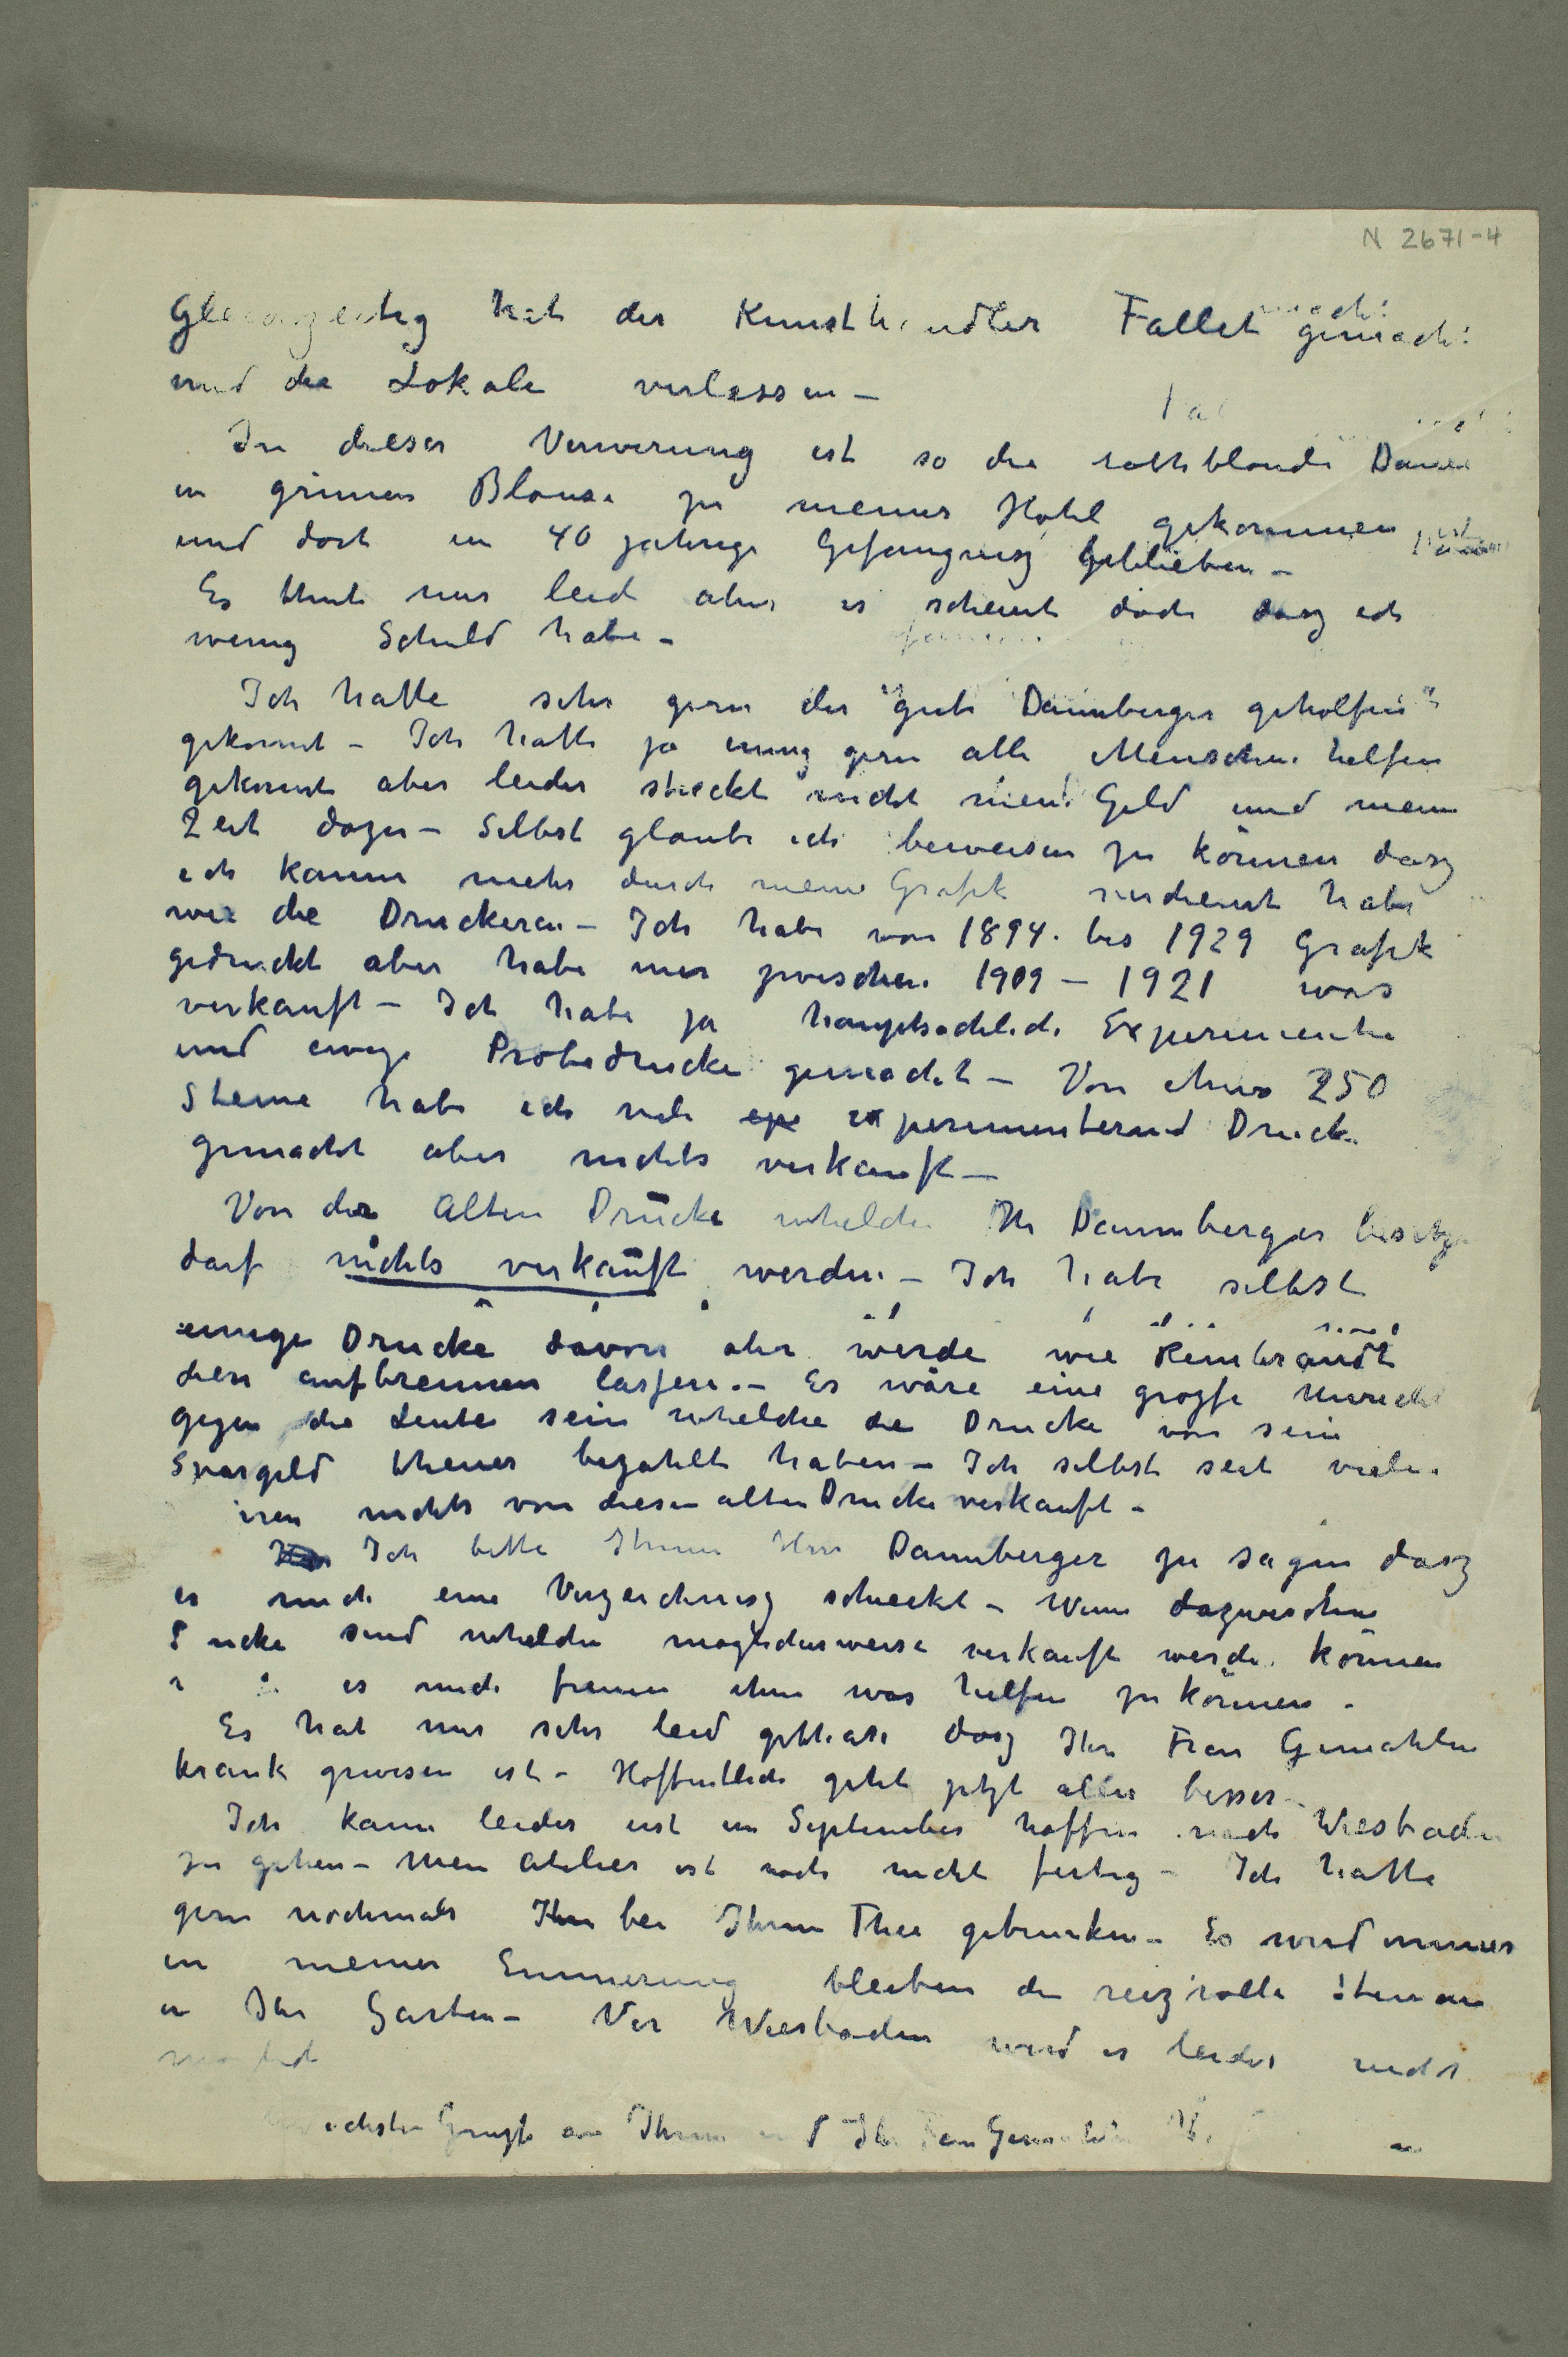 N 2671-4
Gleichzeitig hat der Kunsthändler Fallet gemacht
und die Lokale verlassen –
In dieser Verwirung ist so die rothblonde Dame
in grünen Blouse zu meiner Hotel gekommen
und dort in 40 jahrige Gefangnisz geblieben –
Es thut mir leid aber es scheint doch dasz ich
wenig Schuld habe –
Ich hatte sehr gern der "gute Dannberger geholfen"
gekonnt – Ich hatte ja innig gern alle Menschen helfen
gekonnt aber leider streckt nicht mein Geld und meine
Zeit dazu – Selbst glaube ich beweisen zu können dasz
ich kaum mehr durch meine Grafik verdient habe
wie die Druckeren – Ich habe von 1894. bis 1929 Grafik
gedruckt aber habe nur zwischen 1909 – 1921 was
verkauft – Ich habe ja hauptsachlich Experimente
und einige Probedrucke gemacht – Von etwa 250
Steine habe ich viele epe experimenterend Drucke
gemacht aber nichts verkauft –
Von der alten Drucke whelche Hr Dannberger besitzt
darf nichts verkauft werden – Ich habe selbst
einige Drucke davon aber werde wie Rembrandt
dies aufbrennen lassen. – Es wäre eine groszse Unrecht
gegen die Leute sein whelche die Drucke von sein
Spargeld theuer bezahlt haben – Ich selbst seit viele
nichts von diesen alten Drucke verkauft –
Ich bitte Ihnen Herr Dannberger zu sagen dasz
er mich eine Verzeichnisz schickt – Wenn dazwischen
Drucke sind whelche moglicherweise verkauft werde können
es mich freuen ihm was helfen zu können –
Es hat mir sehr leid gethan dasz Ihre Frau Gemahlin
krank gewesen ist – Hoffentlich geht jetzt alles besser –
Ich kann leider erst im September hoffen nach Wiesbaden
zu gehen – Mein Atelier ist noch nicht fertig – Ich hatte
gern nochmals Ihn bei Ihnen Thee getrunken – Es wird immer
in meiner Erinnerung bleiben die reizvolle Stunden
in Ihr Garten – Vor Wiesbaden wird es leider nicht
möglich
Grusze an Ihnen und Ihr Frau Gemahlin